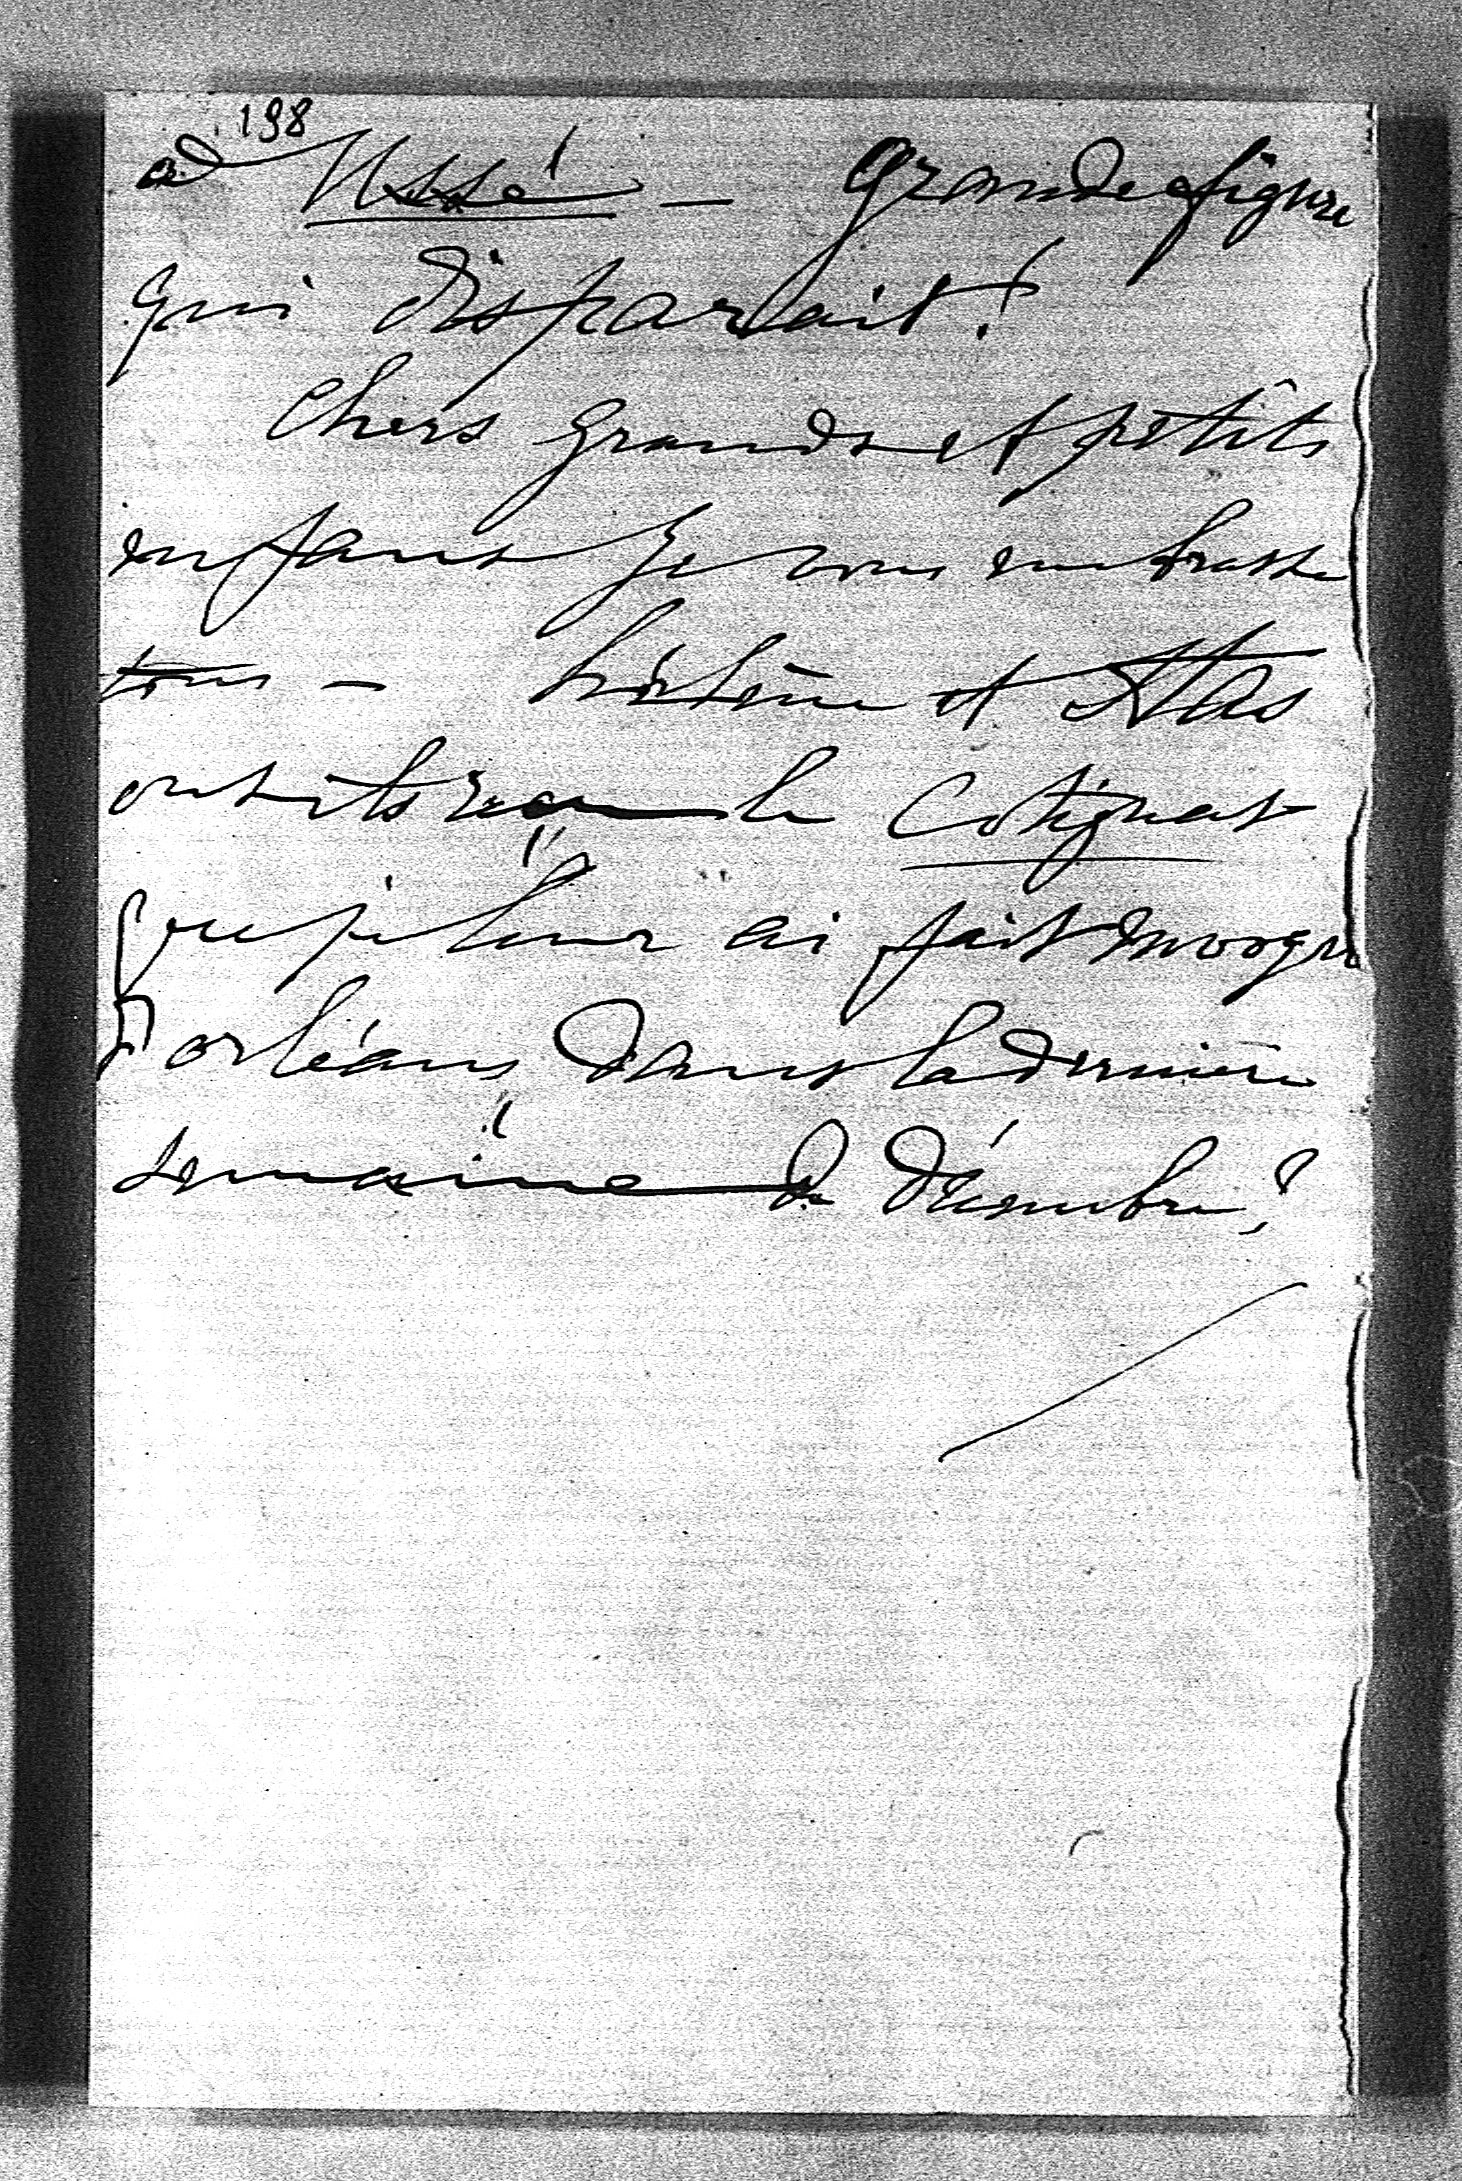 198
à Ussé — Grande figure
qui disparait !
Chers grands et petits
enfans je vous embrasse
tous — hélène et Stas
ont ils reçu le Cotignat
que je leur ai fait envoyer
d'orléans dans la dernière
semaine de décembre ?